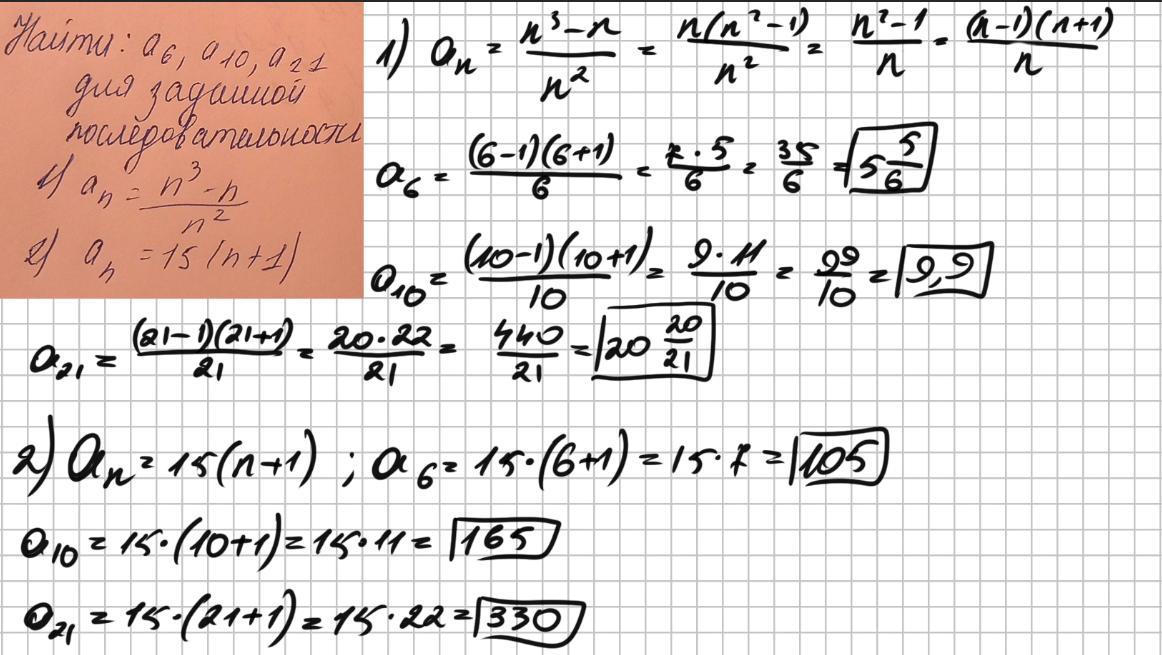 Найти: a₆, a₁₀, a₂₁
для заданной
последовательности
1) aₙ = (n³-n)/n²
2) aₙ = 15(n+1)
1) aₙ = (n³-n)/n² = n(n²-1)/n² = (n²-1)/n = (n-1)(n+1)/n
a₆ = (6-1)(6+1)/6 = 7·5/6 = 35/6 = 5 5/6
a₁₀ = (10-1)(10+1)/10 = 9·11/10 = 99/10 = 9,9
a₂₁ = (21-1)(21+1)/21 = 20·22/21 = 440/21 = 20 20/21
2) aₙ = 15(n+1) ; a₆ = 15·(6+1) = 15·7 = 105
a₁₀ = 15·(10+1) = 15·11 = 165
a₂₁ = 15·(21+1) = 15·22 = 330